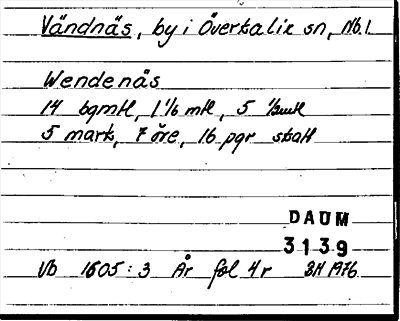 Vändnäs, by i Överkalix sn, Nb.l.
Wendenäs
14 bgmtl, 1 1/6 mtl, 5 1/2mtl
5 mark, 7 öre, 16 pgr skatt
DAUM
3139
Vb 1605:3 År fol 4r BH 1976